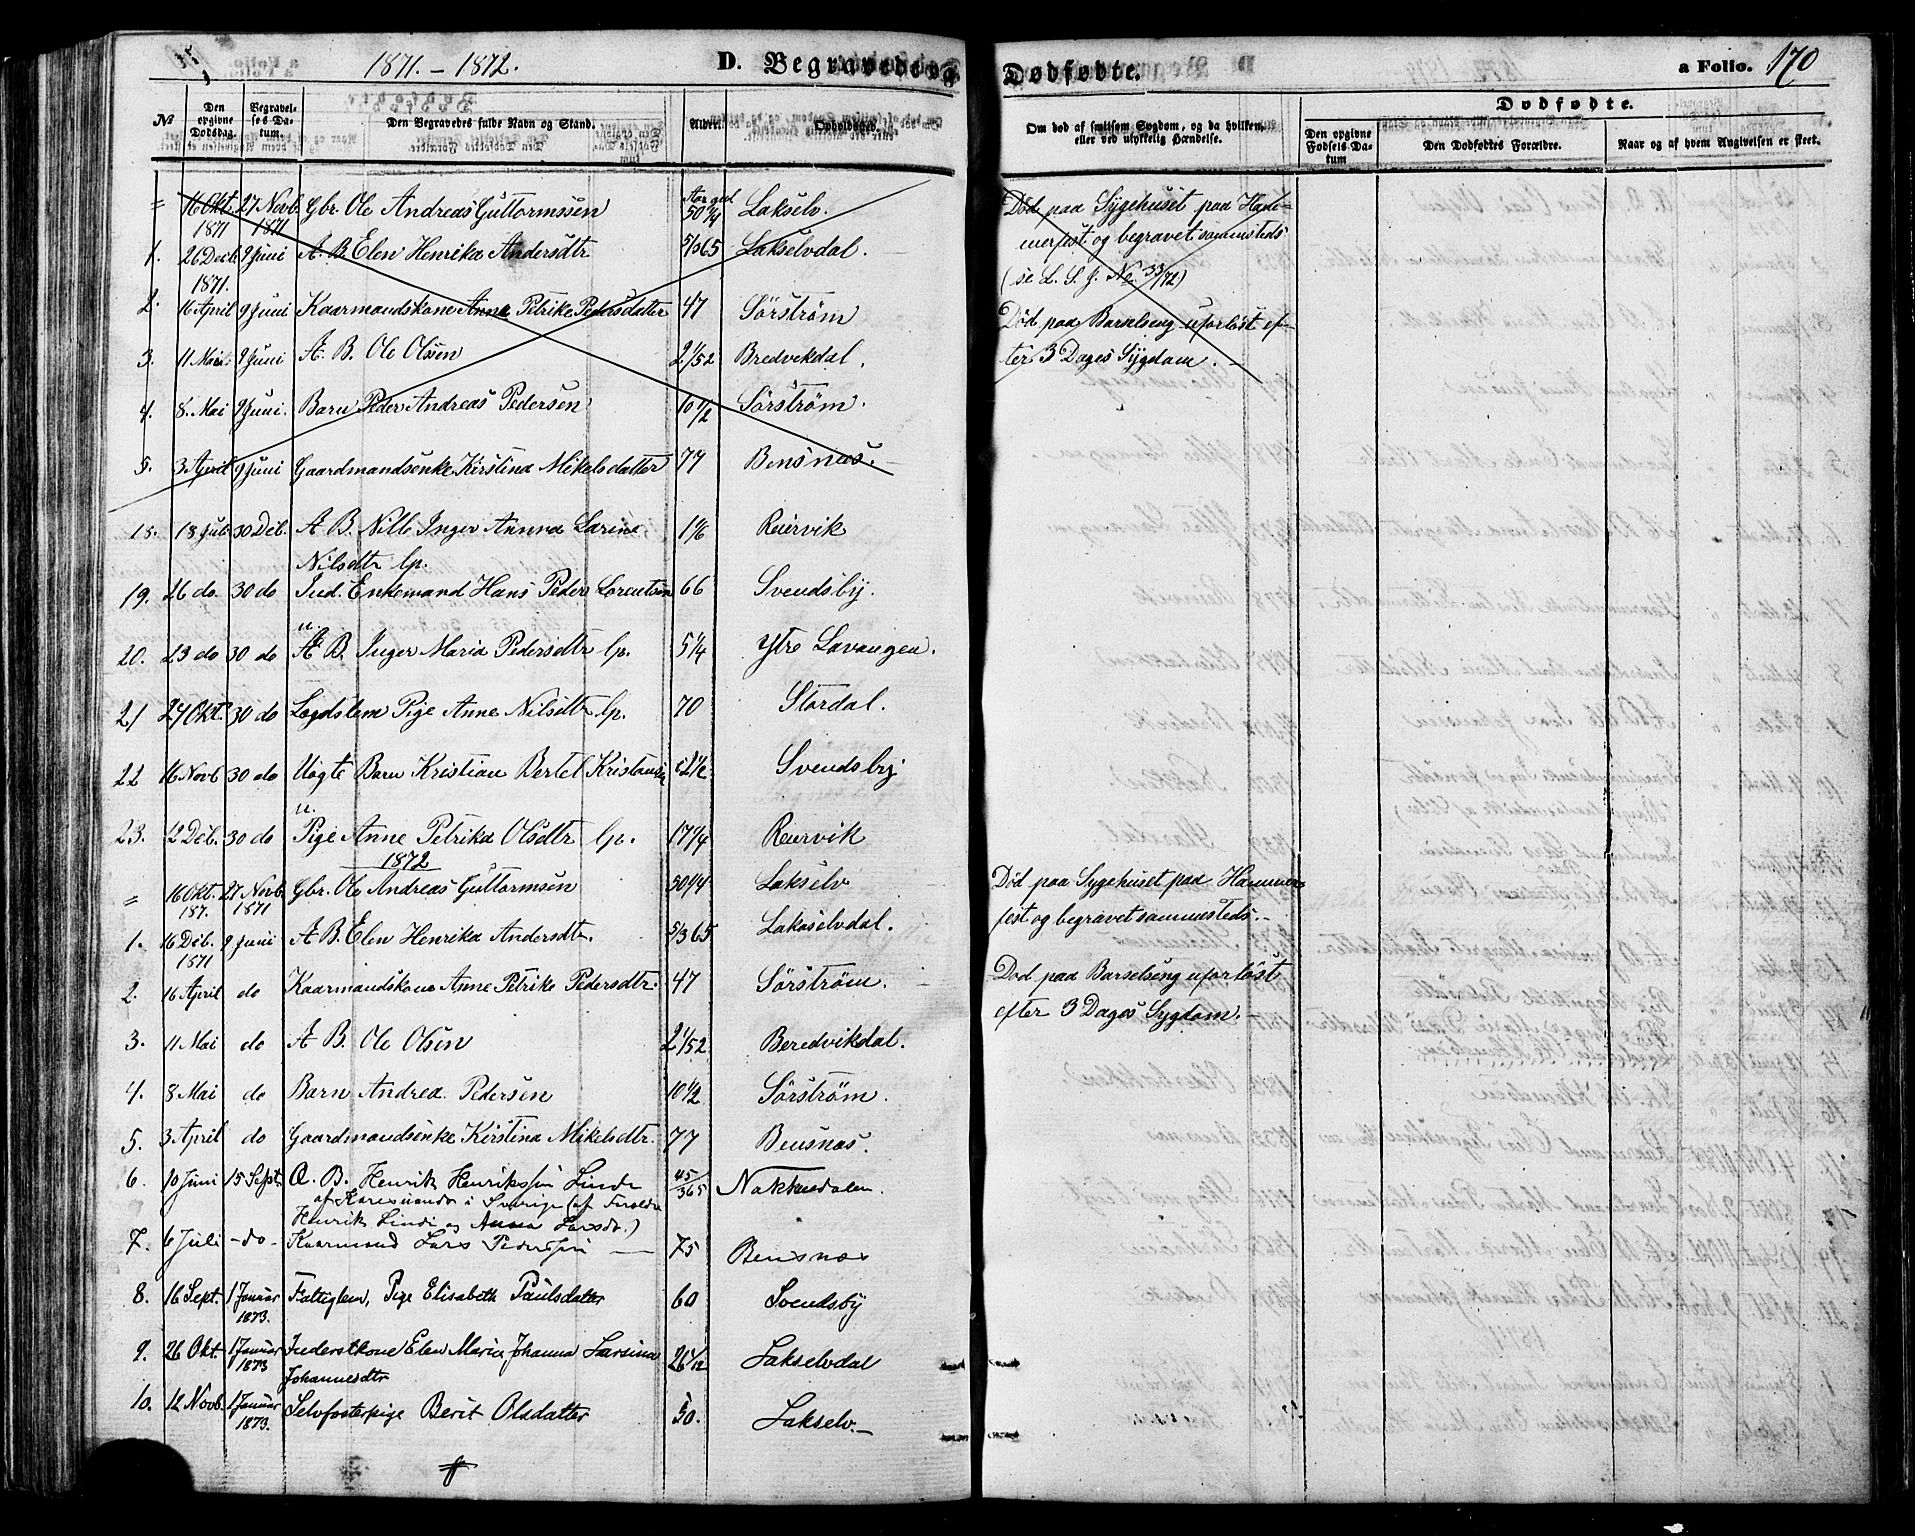 1871. - 1872. D. Begravede og Dødfødte. a Folio. 170
Dødfødte.
№ Den opgivne Dødsdag. Begravelses Datum. Den Begravedes fulde Navn og Stand. Alder. Opholdssted. Om død af smitsom Sygdom, og da hvilken, eller ved ulykkelig Hændelse. Den opgivne Fødsels Datum Den Dødfødtes Forældre. Naar og af hvem Angivelsen er skeet.
= 16 Okt. 1871 27 Novb. 1871 Gbr. Ole Andreas Guttormssen 50 1/4 Lakselv. Død paa Sygehuset paa Hammerfest og begravet sammesteds (se L. S. J. No. 33/72)
1. 26 Decb. 1871. 9 Juni A. B. Elen Henrika Andersdtr 5/365 Lakselvdal.
2. 16 April 9 Juni Kaarmandskone Anna Petrike Pedersdatter 47 Sörström Död paa Barselseng uforlöst efter 3 Dages Sygdom.
3. 11 Mai 9 Juni A. B. Ole Olsen 2 1/52 Bredvikdal.
4. 8. Mai 9 Juni. Barn Peder Andreas Pedersen 10 1/2 Sörström.
5. 3 April 9 Juni Gaardmandsenke Kirstina Mikelsdatter 77 Bensnæs.
18. 18 Juli 30 Deb. A. B. Nille Inger Anna Larine Nilsdtr lp. 1 1/6 Reiervik
19. 26 do 30 do Ind. Enkemand Hans Peder Lorentsen u. 66 Svendsby.
20. 23 do 30 do A. B. Inger Maria Pedersdtr lp. 5 1/4 Ytre Lavangen.
21 27 Okt. 30 do Legdslem Pige Anne Nilsdtr lp. 70 Stordal.
22 16 Novb 30 do Uægte Barn Kristian Bertel Kristansen u. 2 1/2 Svendsby
23. 12 Deb. 30 do Pige Anne Petrika Olsdtr lp. 17 1/4 Reiervik
1872
= 16 Okt. 187. 27 Novb 1871 Gbr. Ole Andreas Guttormsen 50 1/4 Lakselv Död paa Sygehuset paa Hammerfest og begravet sammesteds.
1. 16 Deb. 1871 9 Juni A. B. Elen Henrika Andersdtr. 5/365 Lakselvdal.
2. 16 April do Kaarmandskone Anne Petrike Pedersdtr. 47 Sörström. Dod paa Barselseng uforlöst efter 3 Dages Sygdom.
3. 11 Mai do A. B. Ole Olsen 2 1/52 Beredvikdal.
4. 8 Mai do Barn Andrea Pedersen 10 1/2 Sörström.
5. 3 April do Gaardmandsenke Kirstina Mikelsdtr. 77 Bensnæs.
6. 10 Juni 15 Sept. A. B. Henrik Henriksen Linde 45/365 Nakkedalen.
af Karesuando i Sverige (af Foreldre
Henrik Lindi og Anna Larsdr.)
7. 6 Juli - do - Kaarmand Lars Pedersen 75 Bensnæs
8. 16 Sept. 1 Januar 1873. Fattiglem, Pige Elisabeth Paulsdatter 60 Svendsby
9. 26 Okt. 1 Januar 1873 Inderstkone Elen Maria Johanna Larsina Johannesdtr 26 1/12 Lakselvdal
10. 12 Novb. 1 Januar 1873. Selvfosterpige Berit Olsdatter 50. Lakselv.